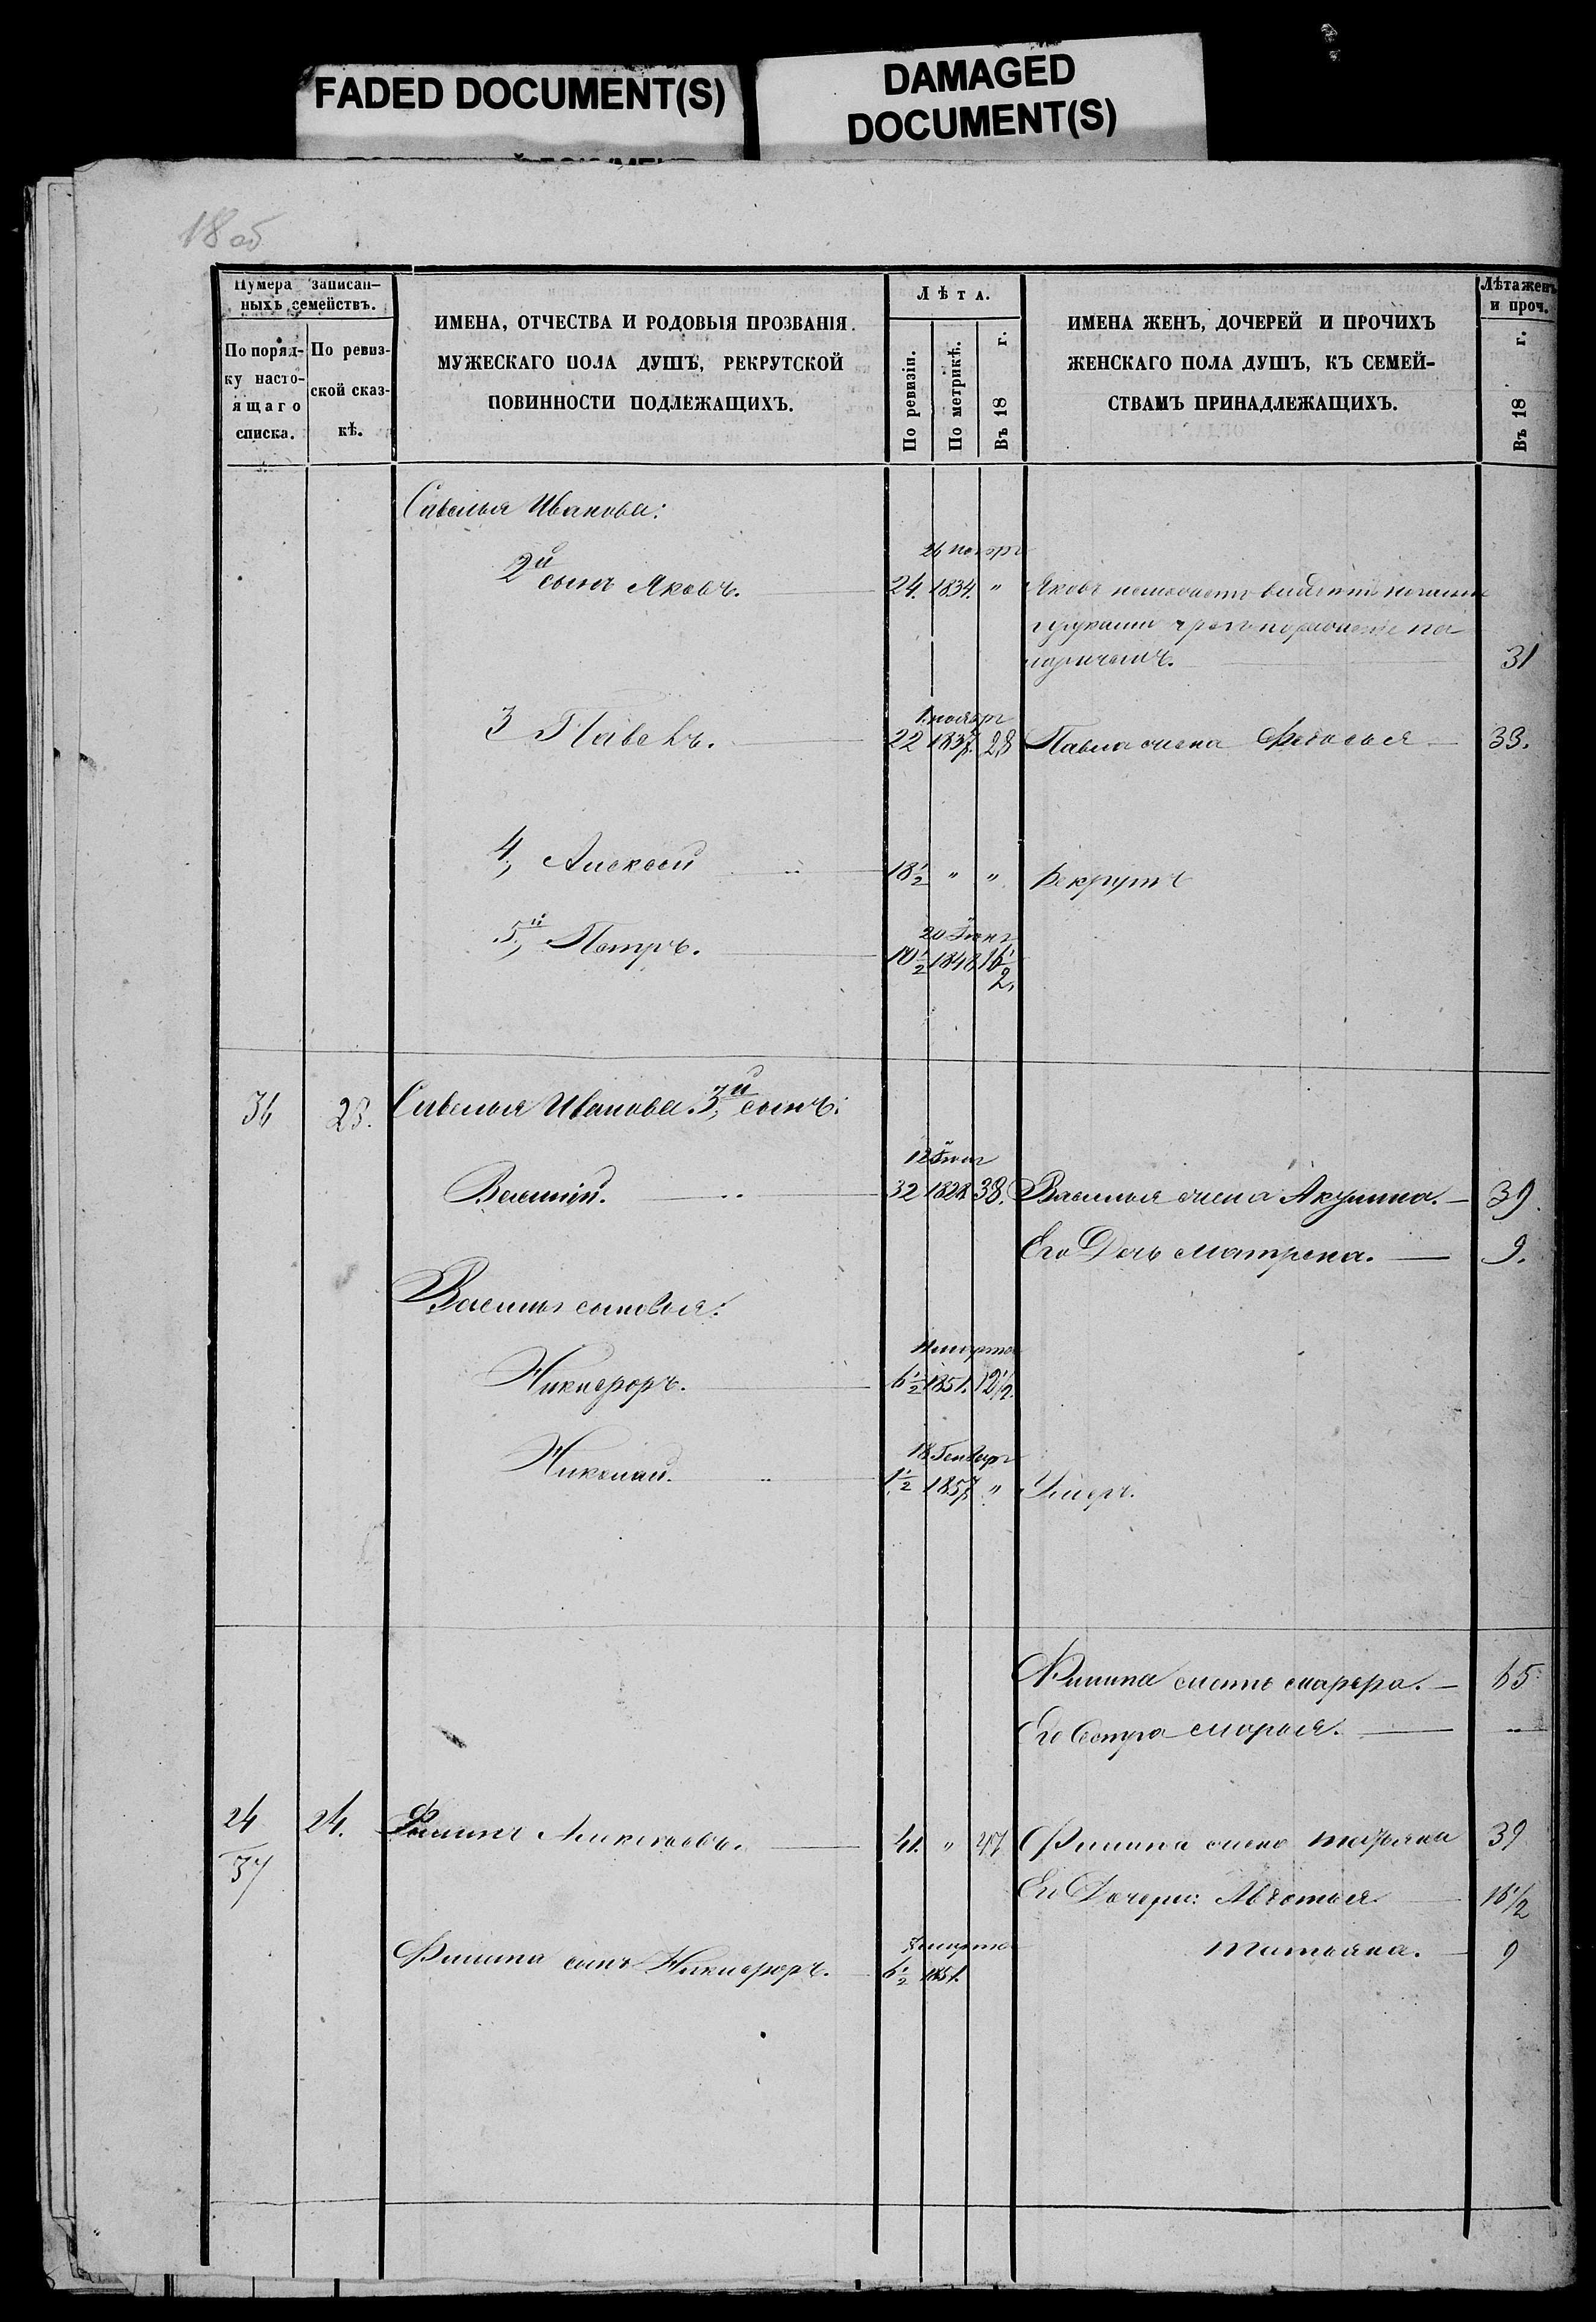 FADED DOCUMENT(S)
DAMAGED
DOCUMENT(S)
18 об
Нумера записан-
ныхъ семействъ.
По поряд-
ку насто-
ящаго
списка.
По ревиз-
ской сказ-
кѣ.
ИМЕНА, ОТЧЕСТВА И РОДОВЫЯ ПРОЗВАНІЯ
МУЖЕСКАГО ПОЛА ДУШЪ, РЕКРУТСКОЙ
ПОВИННОСТИ ПОДЛЕЖАЩИХЪ.
Лѣта.
По ревизіи.
По метрикѣ.
Въ 18 г.
ИМЕНА ЖЕНЪ, ДОЧЕРЕЙ И ПРОЧИХЪ
ЖЕНСКАГО ПОЛА ДУШЪ, КЪ СЕМЕЙ-
СТВАМЪ ПРИНАДЛЕЖАЩИХЪ.
Лѣта женъ
и проч.
Въ 18 г.
Савелья Иванова:
2й сынъ Яковъ. 24. 1834. " Яковъ
31
1 ноябр
3 Павелъ. 22 1837. 28 Павла жена Федосья 33.
4, Алексей 18½ " " Рекрутъ
20 Іюня
5й, Петръ. 10½ 1848 16½.
36 23. Савелья Иванова 3й сынъ:
12
Василий. 32 1828 38. Василья жена Акулина. 39.
Его Дочь Матрена. 9.
Василья сыновья:
марта
Никифоръ. 6½ 1851. 12½
18 Генваря
Николай. 1½ 1857 " Умеръ.
Филипа мать Марфа. 65
Его Сестра Марья. "
24 24. Филипъ Алексеевъ. 41. " 47 Филипа жена 39
37
Его Дочери: Авдотья 16½
марта
Филипа сынъ Никифоръ. 6½ 1851. Татьяна. 9